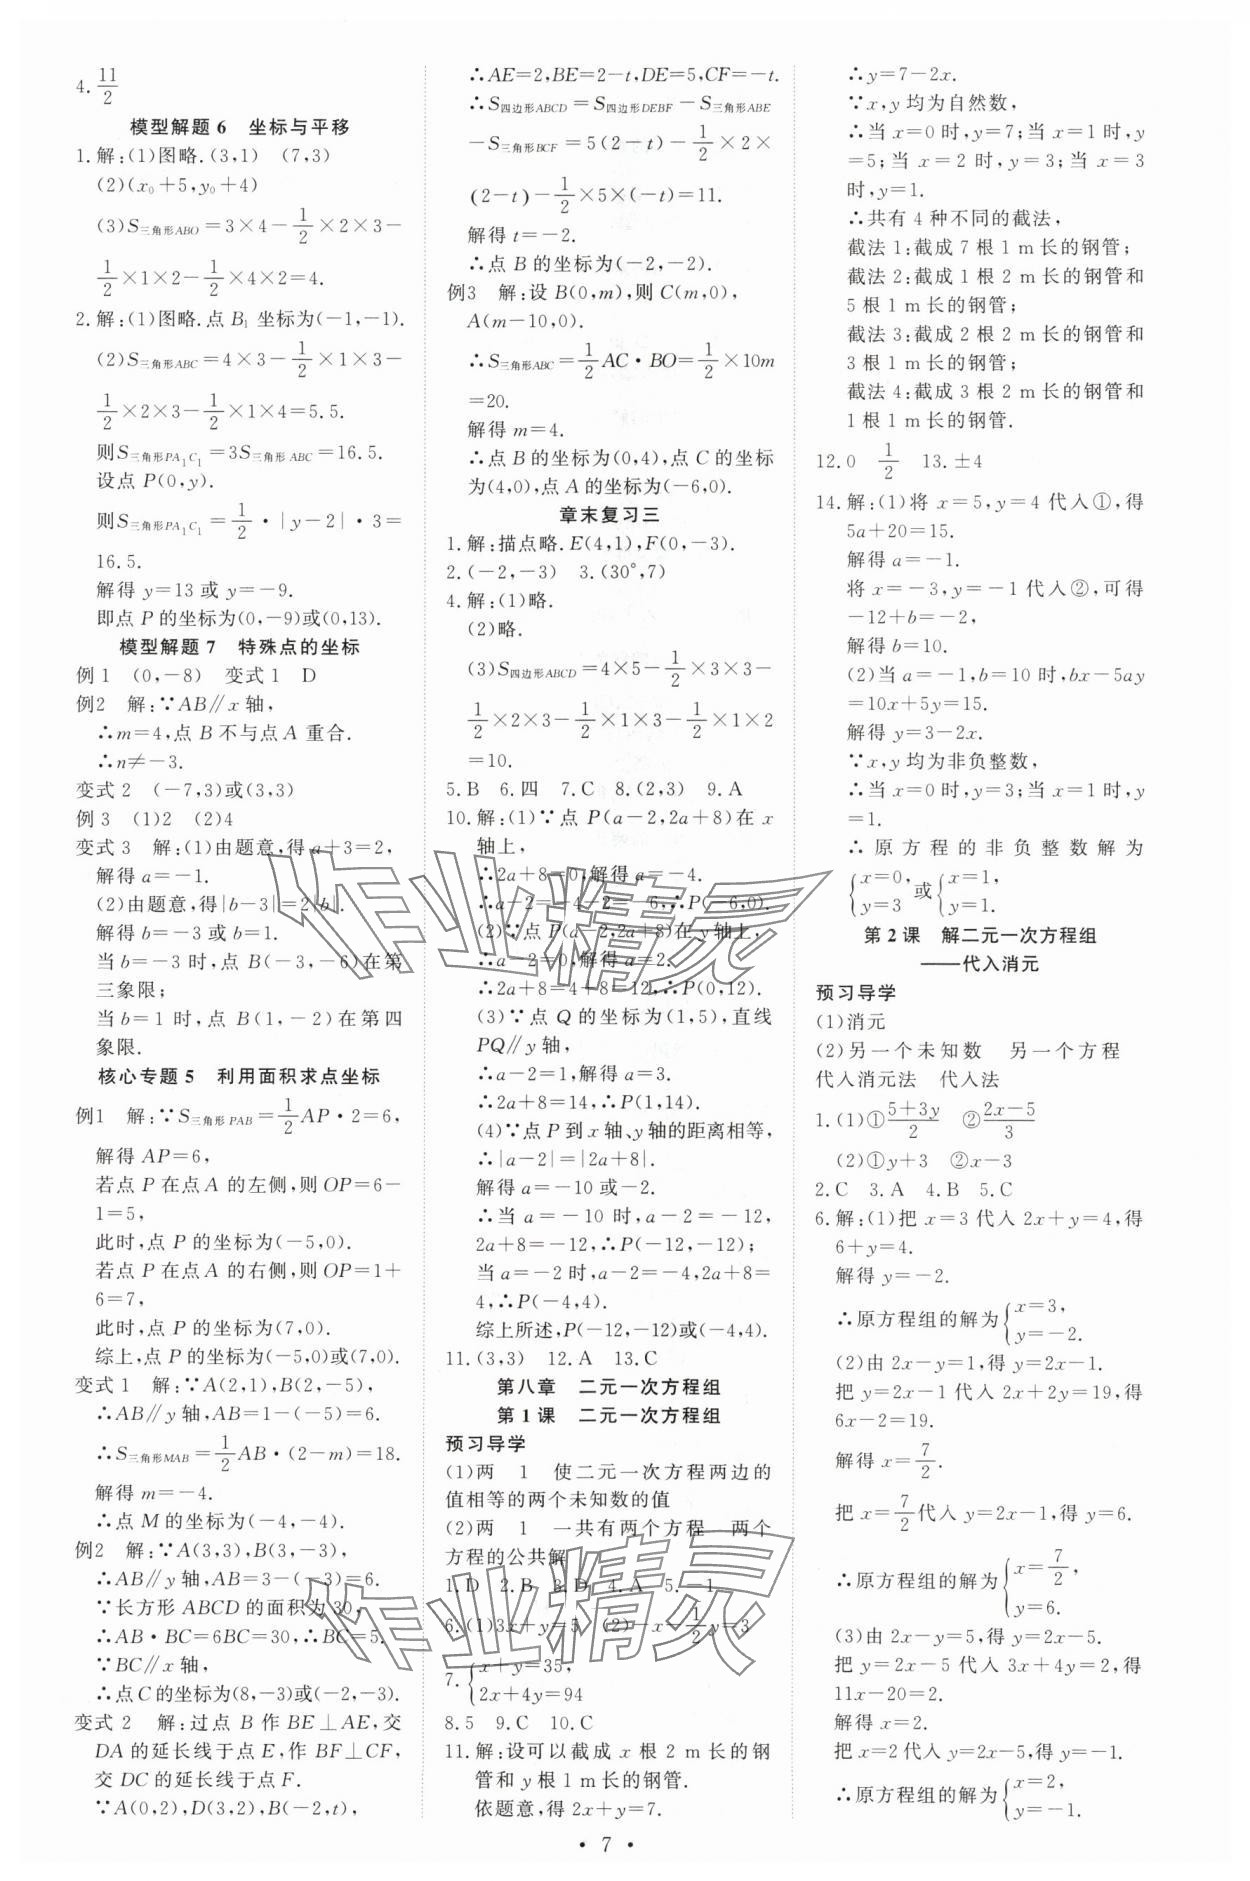 4.11/2
模型解题 6　坐标与平移
1.解:(1)图略.(3,1)　(7,3)
(2)(x₀+5,y₀+4)
(3)S三角形ABO=3×4-1/2×2×3-
1/2×1×2-1/2×4×2=4.
2.解:(1)图略.点 B₁ 坐标为(-1,-1).
(2)S三角形ABC=4×3-1/2×1×3-
1/2×2×3-1/2×1×4=5.5.
则S三角形PA₁C₁=3S三角形ABC=16.5.
设点 P(0,y).
则S三角形PA₁C₁=1/2·|y-2|·3=
16.5.
解得 y=13 或 y=-9.
即点 P 的坐标为(0,-9)或(0,13).
模型解题 7　特殊点的坐标
例 1　(0,-8)　变式 1　D
例2　解:∵AB∥x 轴,
∴m=4,点 B 不与点 A 重合.
∴n≠-3.
变式 2　(-7,3)或(3,3)
例 3　(1)2　(2)4
变式 3　解:(1)由题意,得 a+3=2,
解得 a=-1.
(2)由题意,得|b-3|=2|b|.
解得 b=-3 或 b=1.
当 b=-3 时,点 B(-3,-6)在第
三象限;
当 b=1 时,点 B(1,-2)在第四
象限.
核心专题 5　利用面积求点坐标
例1　解:∵S三角形PAB=1/2AP·2=6,
解得 AP=6,
若点 P 在点 A 的左侧,则 OP=6-
1=5,
此时,点 P 的坐标为(-5,0).
若点 P 在点 A 的右侧,则 OP=1+
6=7,
此时,点 P 的坐标为(7,0).
综上,点 P 的坐标为(-5,0)或(7,0).
变式 1　解:∵A(2,1),B(2,-5),
∴AB∥y 轴,AB=1-(-5)=6.
∴S三角形MAB=1/2AB·(2-m)=18.
解得 m=-4.
∴点 M 的坐标为(-4,-4).
例2　解:∵A(3,3),B(3,-3),
∴AB∥y 轴,AB=3-(-3)=6.
∵长方形 ABCD 的面积为 30,
∴AB·BC=6BC=30,∴BC=5.
∵BC∥x 轴,
∴点 C 的坐标为(8,-3)或(-2,-3).
变式 2　解:过点 B 作 BE⊥AE,交
DA 的延长线于点 E,作 BF⊥CF,
交 DC 的延长线于点 F.
∵A(0,2),D(3,2),B(-2,t),
∴AE=2,BE=2-t,DE=5,CF=-t.
∴S四边形ABCD=S四边形DEBF-S三角形ABE
-S三角形BCF=5(2-t)-1/2×2×
(2-t)-1/2×5×(-t)=11.
解得 t=-2.
∴点 B 的坐标为(-2,-2).
例3　解:设 B(0,m),则 C(m,0),
A(m-10,0).
∴S三角形ABC=1/2AC·BO=1/2×10m
=20.
解得 m=4.
∴点 B 的坐标为(0,4),点 C 的坐标
为(4,0),点 A 的坐标为(-6,0).
章末复习三
1.解:描点略.E(4,1),F(0,-3).
2.(-2,-3)　3.(30°,7)
4.解:(1)略.
(2)略.
(3)S四边形ABCD=4×5-1/2×3×3-
1/2×2×3-1/2×1×3-1/2×1×2
=10.
5.B　6.四　7.C　8.(2,3)　9.A
10.解:(1)∵点 P(a-2,2a+8)在 x
轴上,
∴2a+8=0,解得 a=-4.
∴a-2=-4-2=-6,∴P(-6,0).
(2)∵点 P(a-2,2a+8)在 y 轴上,
∴a-2=0,解得 a=2.
∴2a+8=4+8=12,∴P(0,12).
(3)∵点 Q 的坐标为(1,5),直线
PQ∥y 轴,
∴a-2=1,解得 a=3.
∴2a+8=14,∴P(1,14).
(4)∵点 P 到 x 轴、y 轴的距离相等,
∴|a-2|=|2a+8|.
解得 a=-10 或-2.
∴当 a=-10 时,a-2=-12,
2a+8=-12,∴P(-12,-12);
当 a=-2 时,a-2=-4,2a+8=
4,∴P(-4,4).
综上所述,P(-12,-12)或(-4,4).
11.(3,3)　12.A　13.C
第八章　二元一次方程组
第 1 课　二元一次方程组
预习导学
(1)两　1　使二元一次方程两边的
值相等的两个未知数的值
(2)两　1　一共有两个方程　两个
方程的公共解
1.D　2.B　3.D　4.A　5.-1
6.(1)3x+y=5　(2)-x-1/2y=3
7.{x+y=35,
2x+4y=94
8.5　9.C　10.C
11.解:设可以截成 x 根 2 m 长的钢
管和 y 根 1 m 长的钢管.
依题意,得 2x+y=7.
∴y=7-2x.
∵x,y 均为自然数,
∴当 x=0 时,y=7;当 x=1 时,y
=5;当 x=2 时,y=3;当 x=3
时,y=1.
∴共有 4 种不同的截法,
截法 1:截成 7 根 1 m 长的钢管;
截法 2:截成 1 根 2 m 长的钢管和
5 根 1 m 长的钢管;
截法 3:截成 2 根 2 m 长的钢管和
3 根 1 m 长的钢管;
截法 4:截成 3 根 2 m 长的钢管和
1 根 1 m 长的钢管.
12.0　1/2　13.±4
14.解:(1)将 x=5,y=4 代入①,得
5a+20=15.
解得 a=-1.
将 x=-3,y=-1 代入②,可得
-12+b=-2,
解得 b=10.
(2)当 a=-1,b=10 时,bx-5ay
=10x+5y=15.
解得 y=3-2x.
∵x,y 均为非负整数,
∴当 x=0 时,y=3;当 x=1 时,y
=1.
∴原方程的非负整数解为
{x=0,y=3或{x=1,y=1.
第 2 课　解二元一次方程组
——代入消元
预习导学
(1)消元
(2)另一个未知数　另一个方程
代入消元法　代入法
1.(1)①5+3y/2　②2x-5/3
(2)①y+3　②x-3
2.C　3.A　4.B　5.C
6.解:(1)把 x=3 代入 2x+y=4,得
6+y=4.
解得 y=-2.
∴原方程组的解为{x=3,y=-2.
(2)由 2x-y=1,得 y=2x-1.
把 y=2x-1 代入 4x+2y=19,得
6x-2=19.
解得 x=7/2.
把 x=7/2代入 y=2x-1,得 y=6.
∴原方程组的解为{x=7/2,y=6.
(3)由 2x-y=5,得 y=2x-5.
把 y=2x-5 代入 3x+4y=2,得
11x-20=2.
解得 x=2.
把 x=2 代入 y=2x-5,得 y=-1.
∴原方程组的解为{x=2,y=-1.
作业精灵
作业精灵
• 7 •